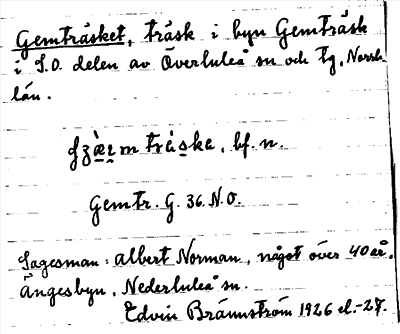 Gemträsket, träsk i byn Gemträsk
i S.O. delen av Överluleå sn och tg, Norrb.
län.
träske, bf. n.
Gemtr. G. 36. N.O.
Sagesman: Albert Norman, något över 40 år,
Ängesbyn, Nederluleå sn.
Edvin Brännström 1926 el.-27.